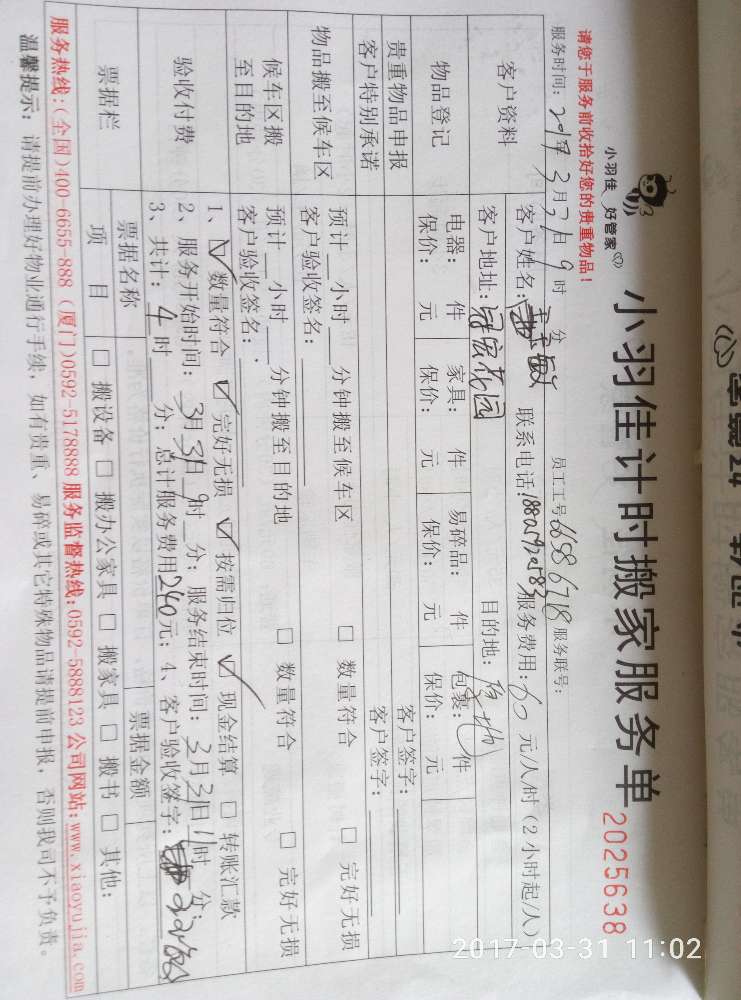 小羽佳 好管家
小羽佳计时搬家服务单
2025638
请您于服务前收拾好您的贵重物品!
服务时间: 年3月31日9时 分 员工工号 服务联号:
客户资料
客户姓名: 联系电话: 服务费用:60元/人/时(2小时起/人)
客户地址: 花园 目的地:
物品登记
电器: 件 家具: 件 易碎品: 件 包裹: 件
保价: 元 保价: 元 保价: 元 保价: 元
贵重物品申报 客户签字:
客户特别承诺 客户签字:
物品搬至候车区
预计 小时 分钟搬至候车区 □ 数量符合 □ 完好无损
客户验收签名:
候车区搬至目的地
预计 小时 分钟搬至目的地 □ 数量符合 □ 完好无损
客户验收签名:
验收付费
1、☑ 数量符合 ☑ 完好无损 ☑ 按需归位 ☑ 现金结算 □ 转账汇款
2、服务开始时间:3月31日9时 分; 服务结束时间:3月31日 时 分;
3、共计:4时 分; 总计服务费用240元; 4、客户验收签字:
票据栏 票据名称 票据金额
项目 □ 搬设备 □ 搬办公家具 □ 搬家具 □ 搬书 □ 其他:
服务热线:(全国)400-6655-888 (厦门)0592-5178888 服务监督热线:0592-5888123 公司网站:www.xiaoyujia.com
温馨提示: 请提前办理好物业通行手续, 如有贵重、易碎或其它特殊物品请提前申报, 否则我司不予负责。
2017-03-31 11:02